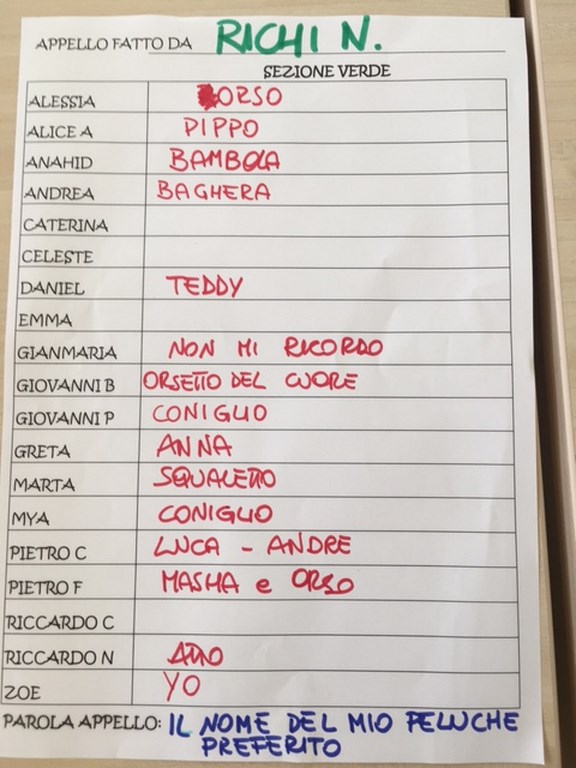 APPELLO FATTO DA RICHI N.
SEZIONE VERDE
ALESSIA ORSO
ALICE A PIPPO
ANAHID BAMBOLA
ANDREA BAGHERA
CATERINA
CELESTE
DANIEL TEDDY
EMMA
GIANMARIA NON MI RICORDO
GIOVANNI B ORSETTO DEL CUORE
GIOVANNI P CONIGLIO
GRETA ANNA
MARTA SQUALETTO
MYA CONIGLIO
PIETRO C LUCA - ANDRE
PIETRO F MASHA e ORSO
RICCARDO C
RICCARDO N
ZOE YO
PAROLA APPELLO: IL NOME DEL MIO PELUCHE
PREFERITO